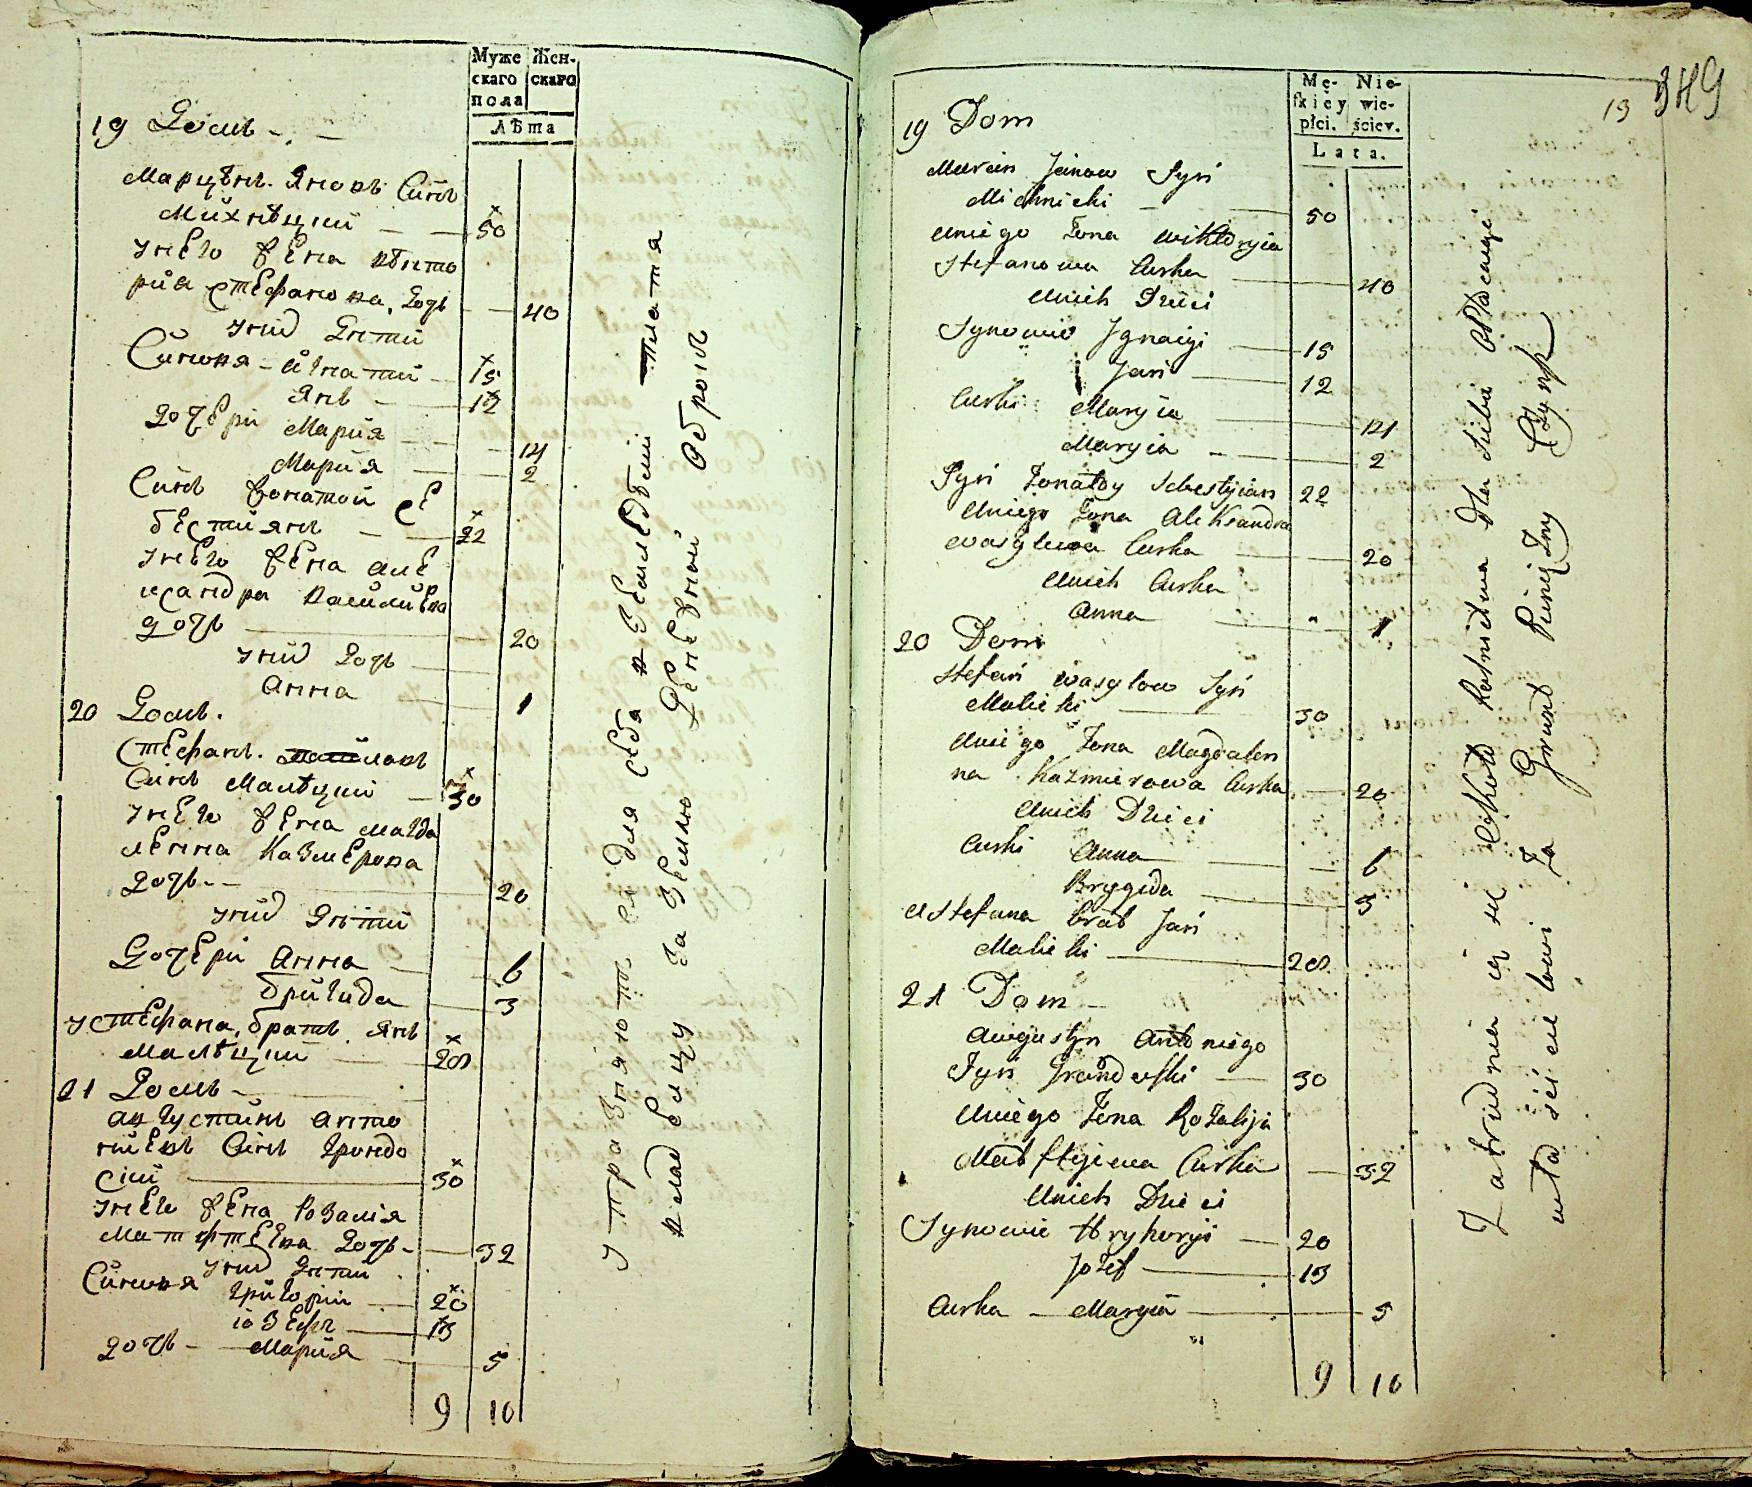 Муже
скаго
пола
Жен-
скаго
Лѣта
19 Домъ
Марцѣнъ Яновъ Сынъ
Михнѣцкий 50
унего жена викто
рия стефанова дочь 40
унихъ дѣти
Сыновя игнатий 15
Янъ 12
дочери Мария 14
Мария 2
Сынъ женатой се
бестиянъ 22
унего жена але
ксандра василиева
дочь 20
унихъ дочь
анна 1
20 Домъ
Стефанъ василовъ
Сынъ Малѣцкий 30
унего жена магда
ленна казмерова
дочь 20
унихъ дѣти
Дочери анна 6
бригида 3
устефана братъ янъ
Малѣцкий 28
21 Домъ
августинъ анто
ниевъ Синъ грондо
сии 30
унего жена розалия
матфтеева дочь 32
унихъ дѣти
Сыновя григорий 20
иозефъ 13
дочь Мария 5
9 10
упразняютъ ся для себя и земледѣлия платя
владѣлцу за землю денежной оброкъ
Mę-
ſkiey
płci.
Nie-
wie-
ściey.
Lata.
19 349
19 Dom
Marcin Janow Syn
Michnicki 50
uniego Żona wiktoryia
stefanowa Curka 40
unich Dzieci
Synowie Jgnaicy 15
Jan 12
Curki Maryia 14
Maryia 2
Syn Żonaty Sebestyian 22
uniego Żona Alexandra
wasylewa Curka 20
unich Curka
Anna 1
20 Dom
Stefan wasylow Syn
Malicki 30
uniego Żona Magdalen
na Kazmierowa Curka 20
unich Dzieci
Curki Anna 6
Brygida 3
uStefana brat Jan
Malicki 28
21 Dom
Augustyn Antoniego
Syn Grondzſki 30
uniego Żona Rozalija
Matfteiewa Curka 32
unich Dzieci
Synowie Hryhoryi 20
Jozef 13
Curka Maryia 5
9 10
Zatrudnia ią się Około Rolnictwa dla siebie opłacaiąc
właścicielowi Za Grunt Pieniężny Czynsz